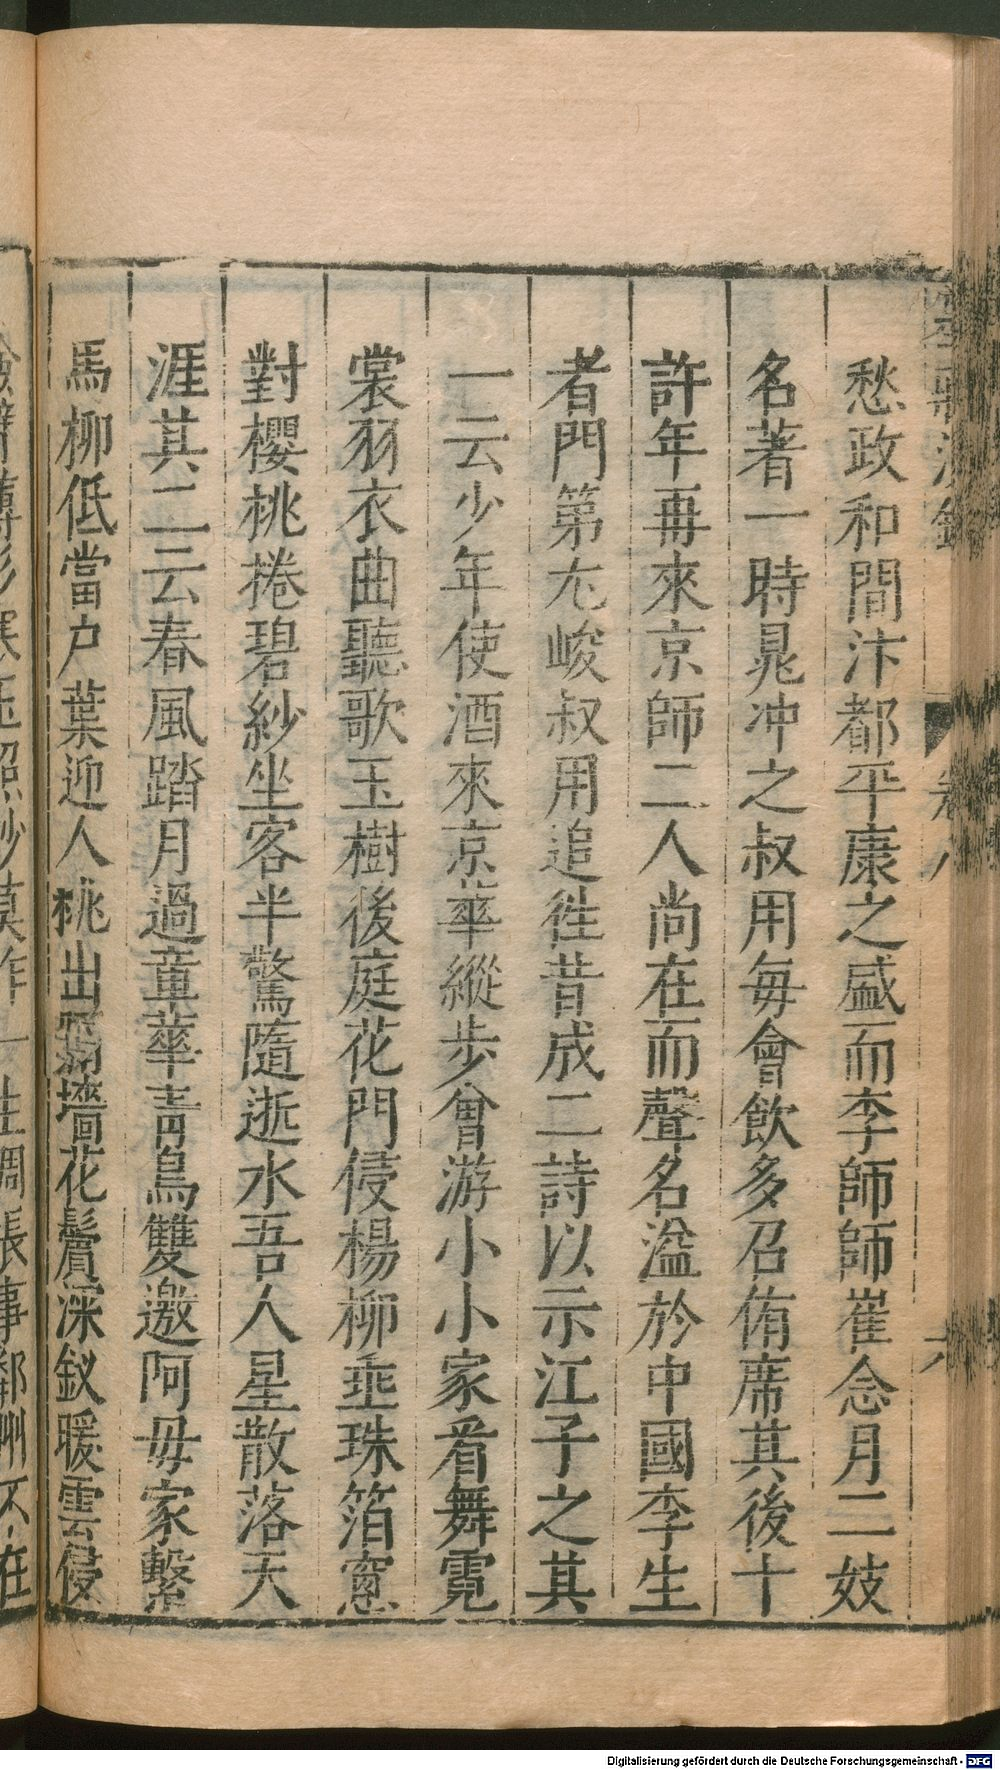 愁政和間汴都平康之盛而李師師崔念月二妓
名著一時晁冲之叔用每會飲多召侑席其後十
許年再來京師二人尚在而聲名溢於中國李生
者門第尤峻叔用追徃昔成二詩以示江子之其
一云少年使酒來京華縱步曾游小小家看舞霓
裳羽衣曲聽歌玉樹後庭花門侵楊柳垂珠箔窓
對櫻桃捲碧紗坐客半驚隨逝水吾人星散落天
涯其二云春風踏月過章華青鳥雙邀阿母家繫
馬柳低當户葉迎人桃出隔墻花鬢深釵暖雲侵
卷八
Digitalisierung gefördert durch die Deutsche Forschungsgemeinschaft - DFG